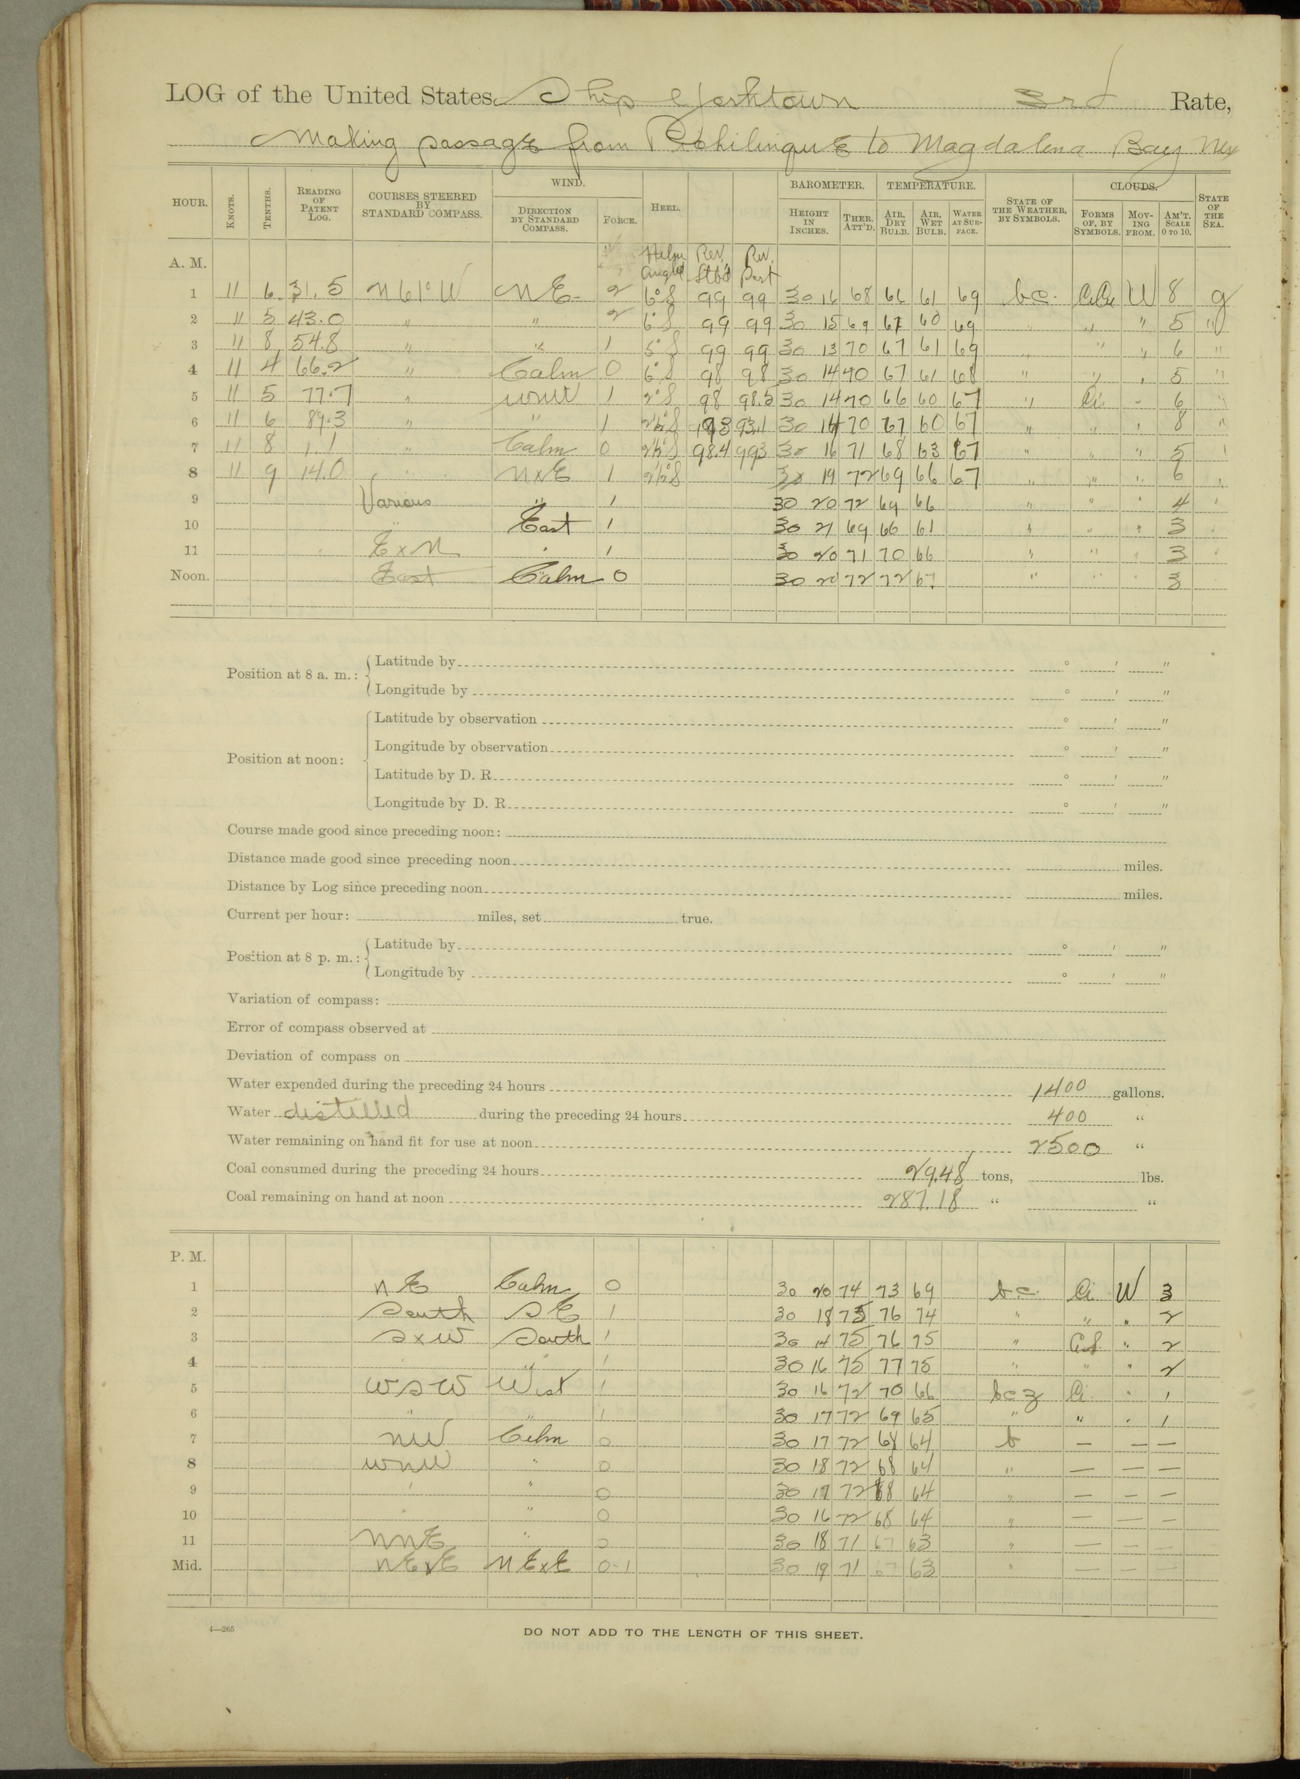 LOG of the United States Ship Yorktown 3rd Rate,
Making passage from Pichilinque to Magdalena Bay Mex
HOUR. KNOTS. TENTHS. READING OF PATENT LOG. COURSES STEERED BY STANDARD COMPASS. WIND. DIRECTION BY STANDARD COMPASS. FORCE. HEEL. BAROMETER. HEIGHT IN INCHES. THER. ATT'D. TEMPERATURE. AIR, DRY BULB. AIR, WET BULB. WATER AT SURFACE. STATE OF THE WEATHER, BY SYMBOLS. CLOUDS. FORMS OF, BY SYMBOLS. MOVING FROM. AM'T. SCALE 0 TO 10. STATE OF THE SEA.
A. M. Helm angle Rev. Stb'd Rev. Port
1 11 6 31.5 N 61° W NE 2 6°S 99 99 30 16 68 66 61 69 bc. Ci.Cu W 8 g
2 11 5 43.0 " " 2 6°S 99 99 30 15 69 67 60 69 " " " 5 "
3 11 8 54.8 " " 1 5°S 99 99 30 13 70 67 61 69 " " " 6 "
4 11 4 66.2 " Calm 0 6°S 98 98 30 14 70 67 61 68 " " " 5 "
5 11 5 77.7 " WNW 1 2°S 98 98.5 30 14 70 66 60 67 " Ci. " 6 "
6 11 6 89.3 " " 1 2½°S 93.1 30 14 70 67 60 67 " " " 8 "
7 11 8 1.1 " Calm 0 2½°S 98.4 99.3 30 16 71 68 63 67 " " " 5 "
8 11 9 14.0 " NxE 1 2½°S 30 19 72 69 66 67 " " " 6 "
9 Various " 1 30 20 72 69 66 " " " 4 "
10 " East 1 30 21 69 66 61 " " " 3 "
11 ExN " 1 30 20 71 70 66 " " " 3 "
Noon. East Calm 0 30 20 72 72 67 " " " 3
Position at 8 a. m.: Latitude by ° ' "
Longitude by ° ' "
Position at noon: Latitude by observation ° ' "
Longitude by observation ° ' "
Latitude by D. R. ° ' "
Longitude by D. R. ° ' "
Course made good since preceding noon:
Distance made good since preceding noon miles.
Distance by Log since preceding noon miles.
Current per hour: miles, set true.
Position at 8 p. m.: Latitude by ° ' "
Longitude by ° ' "
Variation of compass:
Error of compass observed at
Deviation of compass on
Water expended during the preceding 24 hours 1400 gallons.
Water distilled during the preceding 24 hours 400 "
Water remaining on hand fit for use at noon 2500 "
Coal consumed during the preceding 24 hours 29.48 tons, lbs.
Coal remaining on hand at noon 287.18 " "
P. M.
1 NE Calm 0 30 20 74 73 69 bc. Ci. W 3
2 South SE 1 30 18 75 76 74 " " " 2
3 SxW South 1 30 14 75 76 75 " C.S. " 2
4 " " 1 30 16 75 77 75 " " " 2
5 WSW West 1 30 16 72 70 66 bcz Ci. " 1
6 " " 1 30 17 72 69 65 " " " 1
7 NW Calm 0 30 17 72 68 64 b — — —
8 WNW " 0 30 18 72 68 64 " — — —
9 " " 0 30 19 72 68 64 " — — —
10 " 0 30 16 72 68 64 " — — —
11 NNE " 0 30 18 71 67 63 " — — —
Mid. NExE NExE 0-1 30 19 71 67 63 " — — —
4—265
DO NOT ADD TO THE LENGTH OF THIS SHEET.